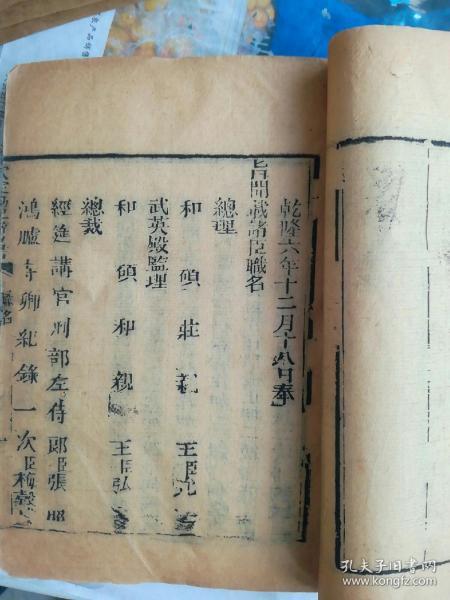 乾隆六年十二月十八日奉
旨開載諸臣職名
總理
和碩莊親王臣允
武英殿監理
和碩和親王臣弘
總裁
經筵講官刑部左侍郎臣張照
鴻臚寺卿紀錄一次臣梅瑴
孔夫子旧书网
www.kongfz.com